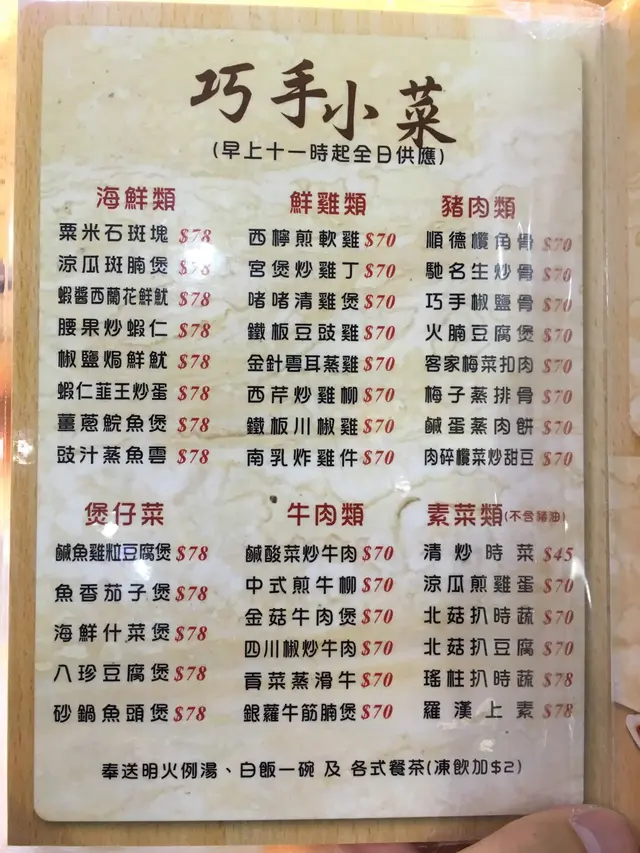 巧手小菜
(早上十一時起全日供應)
海鮮類
粟米石斑塊 $78
涼瓜斑腩煲 $78
蝦醬西蘭花鮮魷 $78
腰果炒蝦仁 $78
椒鹽焗鮮魷 $78
蝦仁韮王炒蛋 $78
薑蔥鯇魚煲 $78
豉汁蒸魚雲 $78
鮮雞類
西檸煎軟雞 $70
宮煲炒雞丁 $70
啫啫清雞煲 $70
鐵板豆豉雞 $70
金針雲耳蒸雞 $70
西芹炒雞柳 $70
鐵板川椒雞 $70
南乳炸雞件 $70
豬肉類
順德欖角骨 $70
馳名生炒骨 $70
巧手椒鹽骨 $70
火腩豆腐煲 $70
客家梅菜扣肉 $70
梅子蒸排骨 $70
鹹蛋蒸肉餅 $70
肉碎欖菜炒甜豆 $70
煲仔菜
鹹魚雞粒豆腐煲 $78
魚香茄子煲 $78
海鮮什菜煲 $78
八珍豆腐煲 $78
砂鍋魚頭煲 $78
牛肉類
鹹酸菜炒牛肉 $70
中式煎牛柳 $70
金菇牛肉煲 $70
四川椒炒牛肉 $70
貢菜蒸滑牛 $70
銀蘿牛筋腩煲 $70
素菜類(不含豬油)
清炒時菜 $45
涼瓜煎雞蛋 $70
北菇扒時蔬 $70
北菇扒豆腐 $70
瑤柱扒時蔬 $78
羅漢上素 $78
奉送明火例湯、白飯一碗 及 各式餐茶(凍飲加$2)